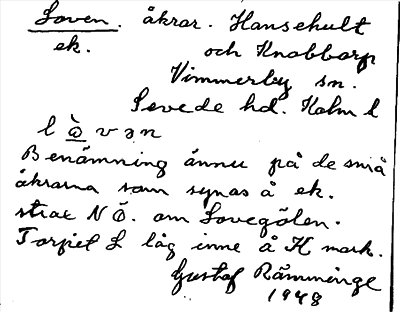 Loven. åkrar. Hansehult
ek. och Knabbarp
Vimmerby sn.
Sevede hd. Kalm l
l ò̱ v ə n
Benämning ännu på de små
åkrarna som synas å ek.
strax N Ö. om Lovegölen.
Torpet L låg inne å H mark.
Gustaf Rämminge
1948